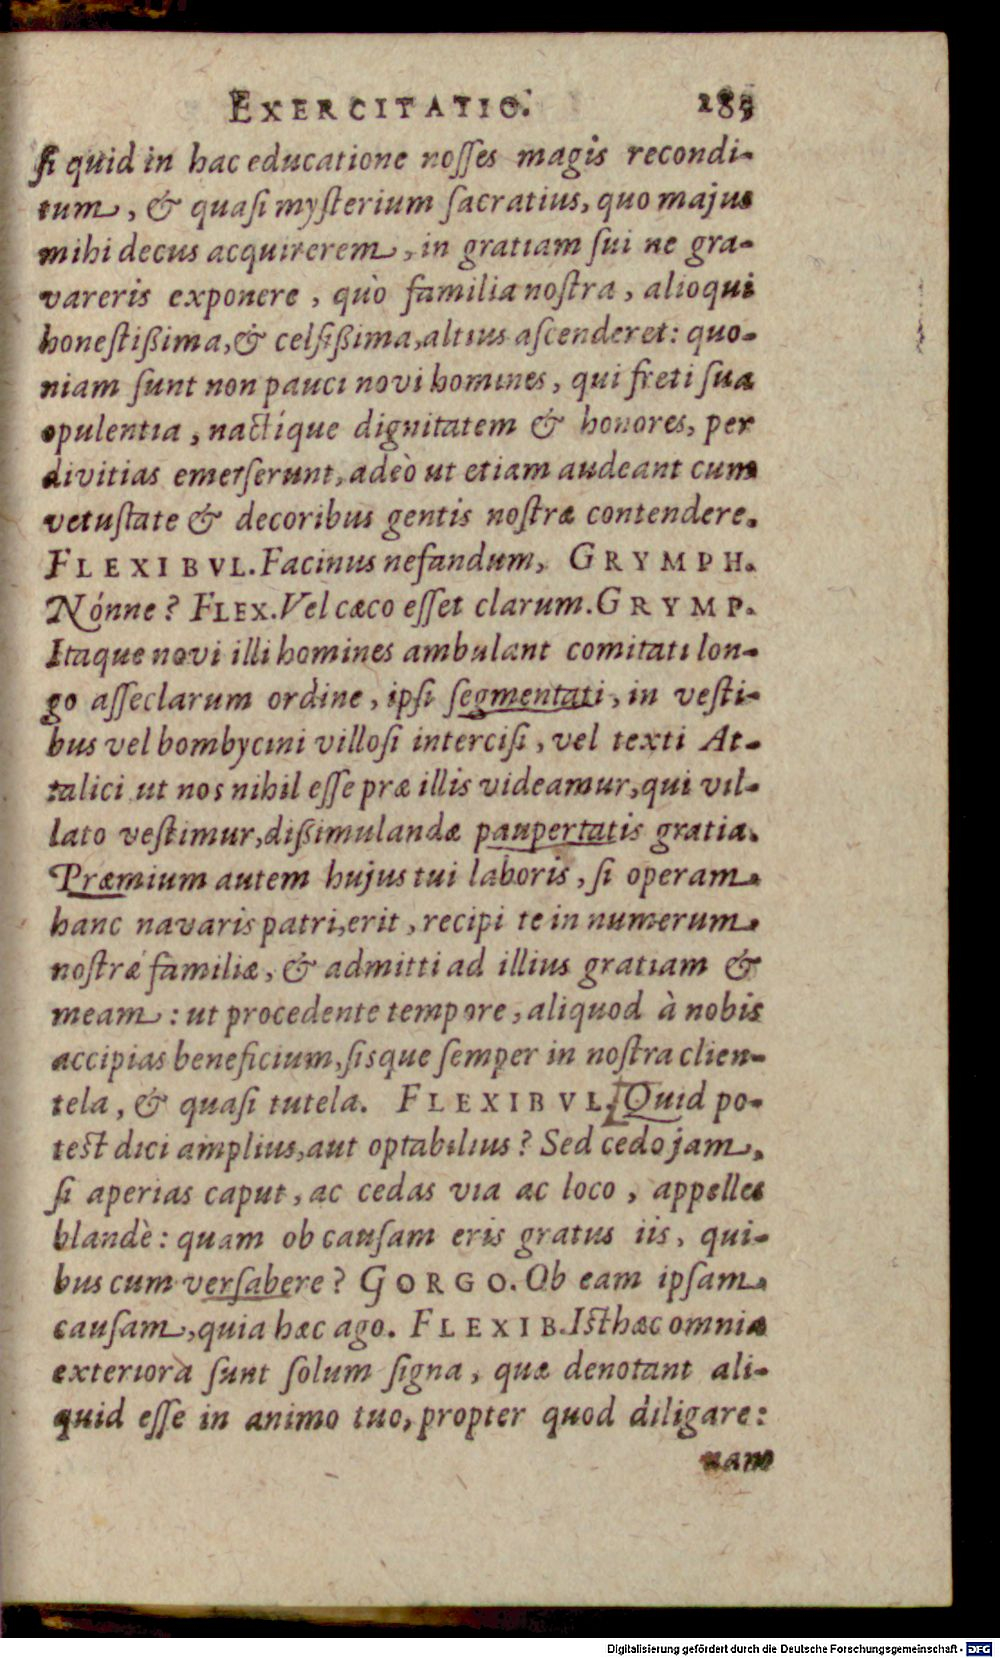 EXERCITATIO. 285
ſi quid in hac educatione noſſes magis recondi-
tum, & quaſi myſterium ſacratius, quo majus
mihi decus acquirerem, in gratiam ſui ne gra-
vareris exponere, quò familia noſtra, alioqui
honeſtißima, & celſißima, altius aſcenderet: quo-
niam ſunt non pauci novi homines, qui freti ſua
opulentia, nactíque dignitatem & honores, per
divitias emerſerunt, adeò ut etiam audeant cum
vetuſtate & decoribus gentis noſtræ contendere.
FLEXIBVL. Facinus nefandum, GRYMPH.
Nónne? FLEX. Vel cæco eſſet clarum. GRYMP.
Itaque novi illi homines ambulant comitati lon-
go aſſeclarum ordine, ipſi ſegmentati, in veſti-
bus vel bombycini villoſi interciſi, vel texti At-
talici ut nos nihil eſſe præ illis videamur, qui vil-
lato veſtimur, dißimulandæ paupertatis gratia.
Præmium autem hujus tui laboris, ſi operam
hanc navaris patri, erit, recipi te in numerum
noſtræ familiæ, & admitti ad illius gratiam &
meam: ut procedente tempore, aliquod à nobis
accipias beneficium, ſisque ſemper in noſtra clien-
tela, & quaſi tutela. FLEXIBVL. Quid po-
test dici amplius, aut optabilius? Sed cedo jam,
ſi aperias caput, ac cedas via ac loco, appelles
blandè: quam ob cauſam eris gratus iis, qui-
bus cum verſabere? GORGO. Ob eam ipſam
cauſam, quia hæc ago. FLEXIB. Isthæc omnia
exteriora ſunt ſolum ſigna, quæ denotant ali-
quid eſſe in animo tuo, propter quod diligare:
nam
Digitalisierung gefördert durch die Deutsche Forschungsgemeinschaft - DFG